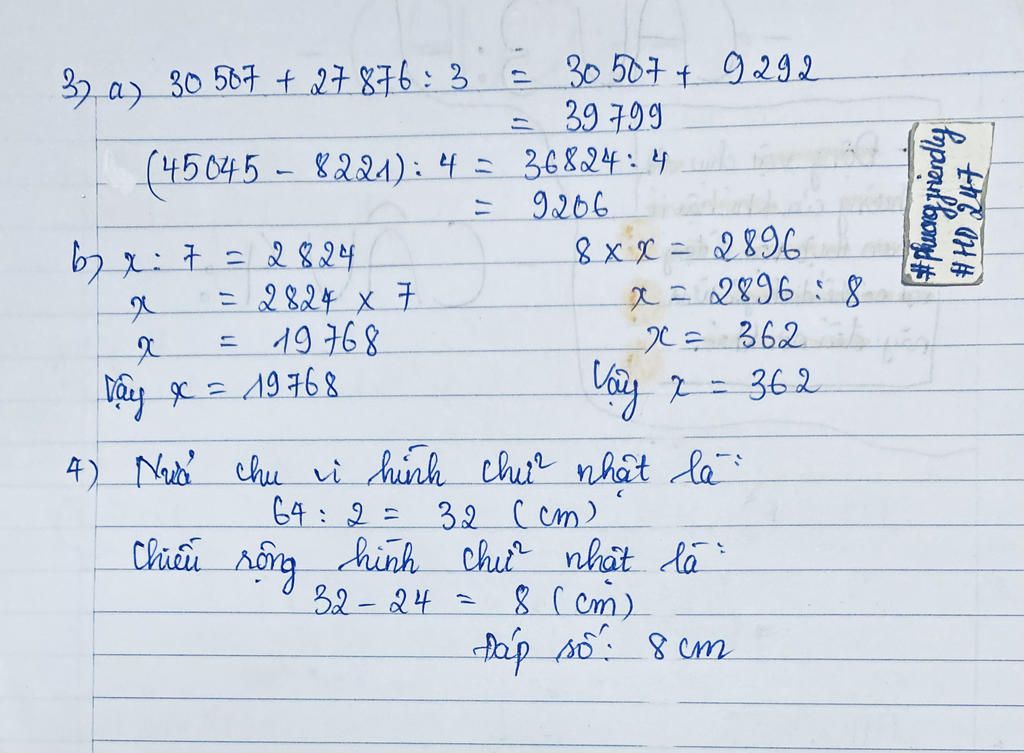 3) a) 30 507 + 27 876 : 3 = 30 507 + 9 292
= 39 799
(45045 - 8221) : 4 = 36824 : 4
= 9206
b) x : 7 = 2 824
x = 2824 x 7
x = 19 768
Vậy x = 19768
8 x x = 2896
x = 2896 : 8
x = 362
Vậy x = 362
4) Nửa chu vi hình chữ nhật là:
64 : 2 = 32 (cm)
Chiều rộng hình chữ nhật là:
32 - 24 = 8 (cm)
Đáp số: 8 cm